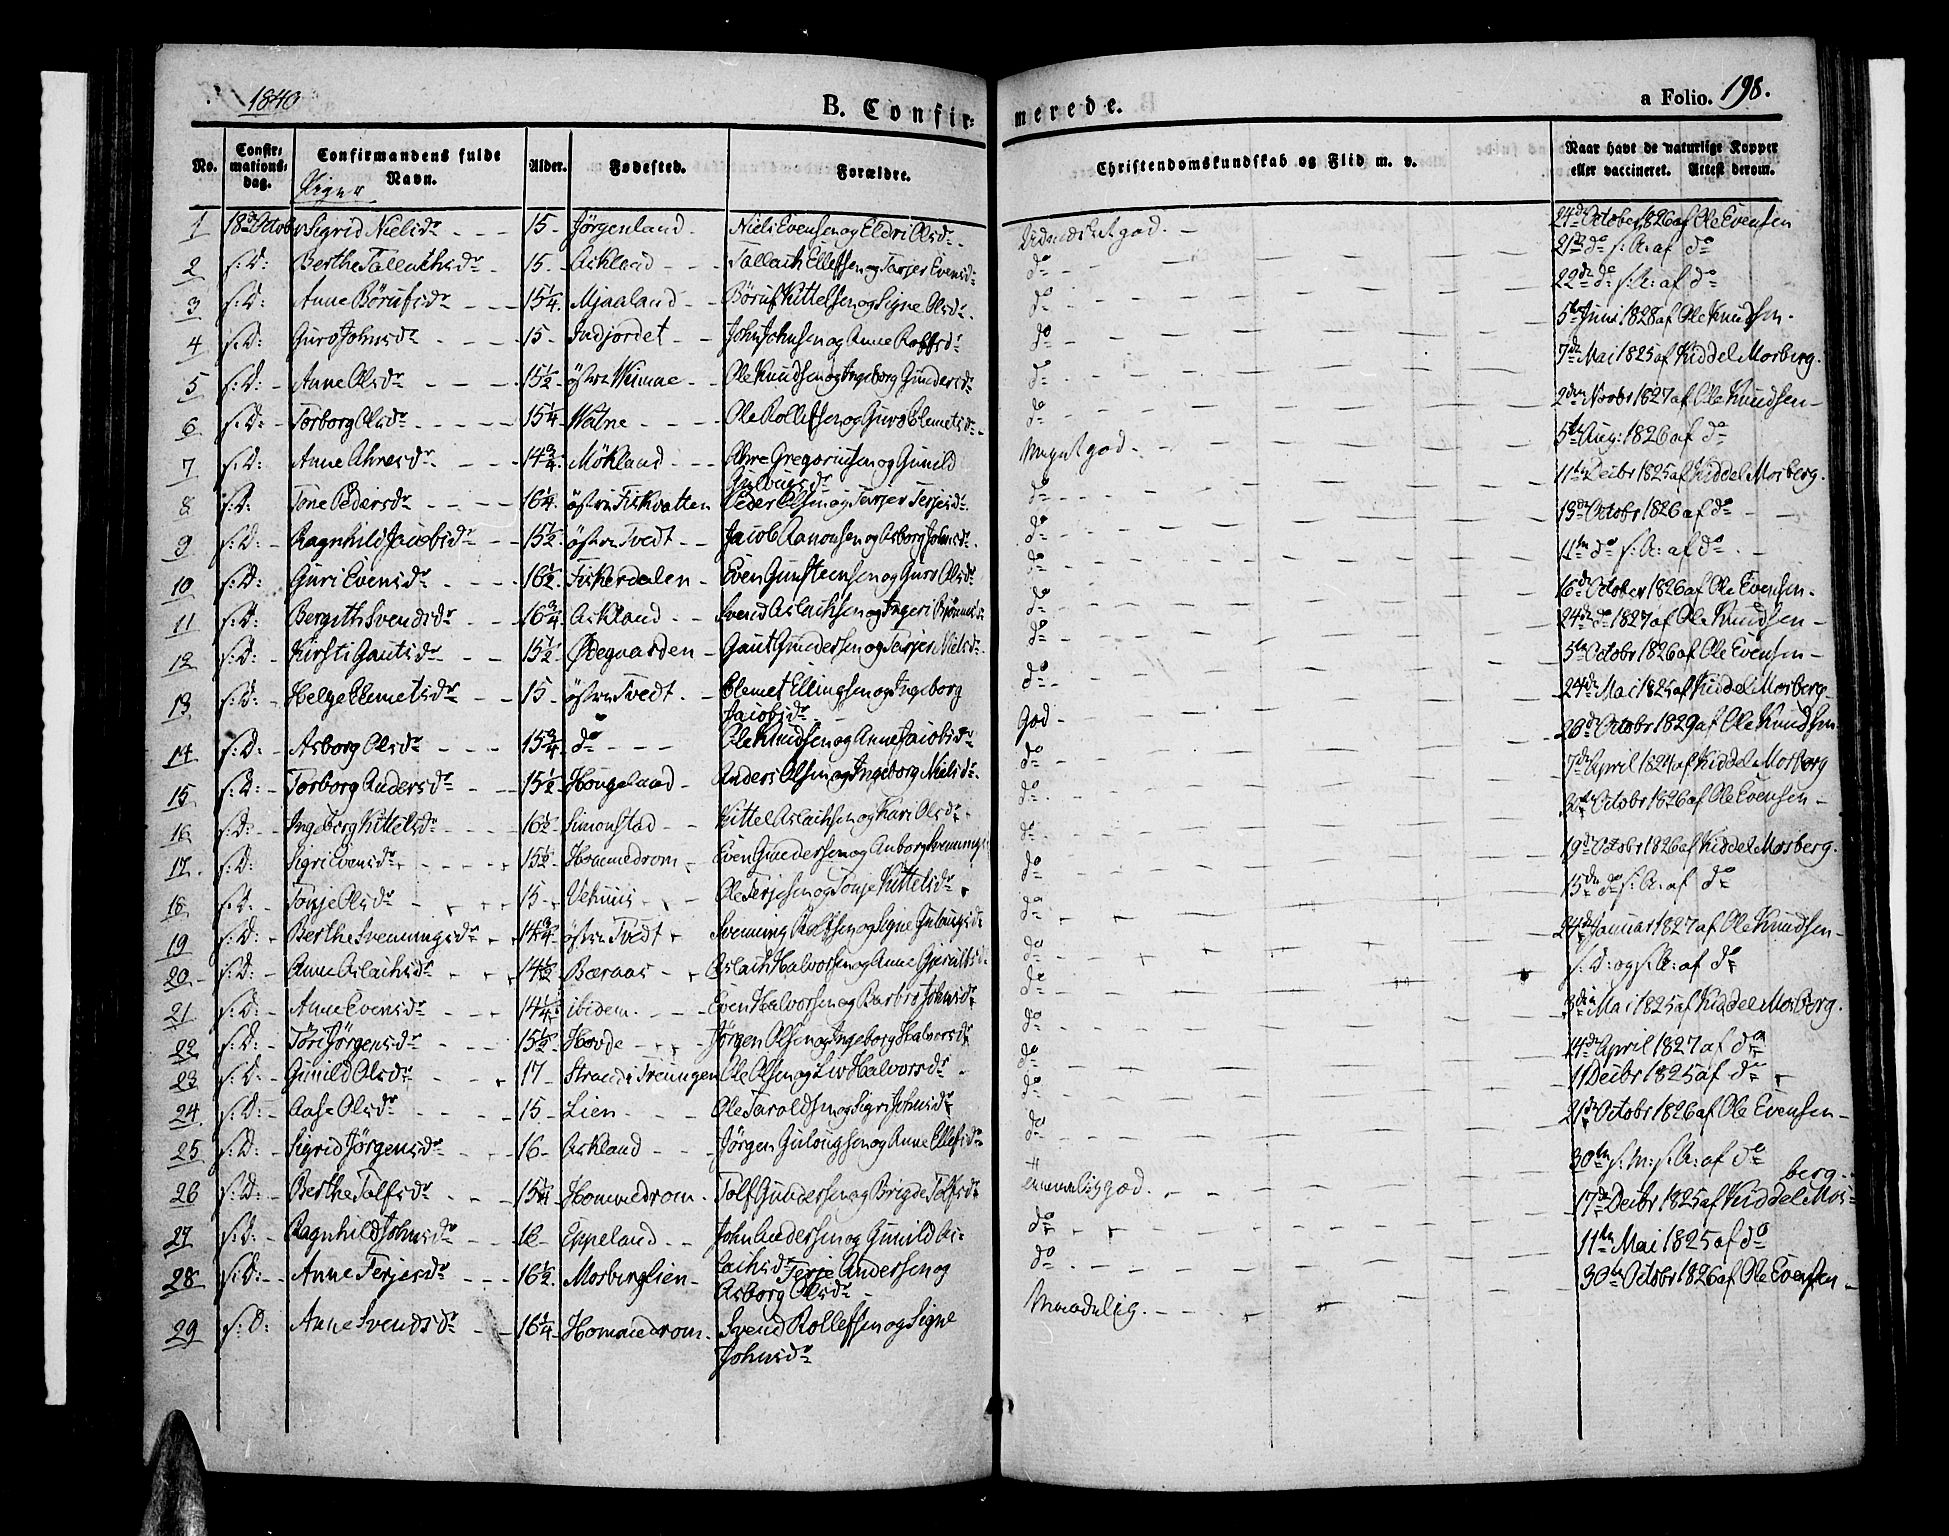 1840
B. Confirmerede.
a Folio. 198.
No. Confirmationsdag. Confirmandens fulde Navn. Alder. Fødested. Forældre. Christendomskundskab og Flid m. v. Naar havt de naturlige Kopper eller vaccineret. Attest derom.
Piger
1 18de Octobr Sigrid Nielsdr 15 Jörgenland Niels Evensen og Eldri Olsdr godt 24de October 1826 af Ole Evensen
2 s: D: Berthe Tallachsdr 15 Askland Tallach Ellefsen og Tarjer Evensdr do 21de do s: A: af do
3 s: D: Anne Börufsdr 15 1/4 Mjaaland Böruf Kittelsen og Signe Olsdr do 22de do s: A: af do
4 s: D: Guro Johnsdr 15 Indjordet John Johnsen og Anne Rolfsdr do 5te Juni 1828 af Ole Knudsen
5 s: D: Anne Olsdr 15 1/2 östre Ole Knudsen og Ingeborg Gundersdr do 7de Mai 1825 af Kiddel Mosberg
6 s: D: Torborg Olsdr 15 1/4 Watne Ole Rollefsen og Guro Clemetsdr do 2den Novbr 1827 af Ole Knudsen
7 s: D: Anne Ahresdr 14 3/4 Mökland Ahre Gregoriusen og Gunild Gulougsdr Meget god 5te Aug: 1826 af do
8 s: D: Tone Pedersdr 16 1/4 östre Fiskvatten Peder Olsen og Tarjer Terjesdr do 11te Decbr 1825 af Kiddel Mosberg
9 s: D: Ragnhild Jacobsdr 15 1/2 östre Tvedt Jacob Aanonsen og Asborg Johnsdr do 13de Octobr 1826 af do
10 s: D: Guri Evensdr 16 1/2 Fiskerdalen Even Gunsteensen og Guro Olsdr do 11te do s: A: af do
11 s: D: Bergith Svendsdr 16 3/4 Askland Svend Aslachsen og Ingeri do 16de October 1826 af Ole Evensen
12 s: D: Kirsti Gautsdr 15 1/2 Ødegaarden Gaut Gundersen og Tarjer Nielsdr do 24de do 1827 af Ole Knudsen
13 s: D: Helge Clemetsdr 15 östre Tvedt Clemet Ellingsen og Ingeborg Jacobsdr do 5te Octobr 1826 af Ole Evensen
14 s: D: Asborg Olsdr 15 3/4 do Ole Knudsen og Anne Jacobsdr God 24de Mai 1825 af Kiddel Mosberg
15 s: D: Torborg Andersdr 15 1/2 Hougeland Anders Olsen og Ingeborg Nielsdr do 26de Octobr 1829 af Ole Knudsen
16 s: D: Ingeborg Kittelsdr 16 1/2 Simonstad Kittel Aslachsen og Kari Olsdr do 7de April 1824 af Kiddel Mosberg
17 s: D: Sigri Evensdr 15 1/2 Hommedrom Even Gundersen og Anborg Svennings do Octobr 1826 af Ole Evensen
18 s: D: Tonje Olsdr 15 Vehuus Ole Terjesen og Tonje Kittelsdr do 19de Octobr 1826 af Kiddel Mosberg
19 s: D: Berthe Svenningsdr 14 3/4 östre Tvedt Svenning Rolfsen og Signe Gulougsdr do 15de do s: A: af do
20 s: D: Anne Aslachsdr 14 1/2 Baraas Aslach Halvorsen og Anne do 24de Januar 1827 af Ole Knudsen
21 s: D: Anne Evensdr 14 1/4 ibidem Even Halvorsen og Barbro Johnsdr do s: D: og s: A: af do
22 s: D: Töri Jörgensdr 15 1/2 Hovde Jörgen Olsen og Ingeborg Halvorsdr do 3die Mai 1825 af Kiddel Mosberg
23 s: D: Gunild Olsdr 17 Strand i Treungen Ole Olsen og Liv Halvorsdr do 14de April 1827 af do
24 s: D: Aase Olsdr 15 Lien Ole Taraldsen og Sigri Johnsdr do 11 Decbr 1825 af do
25 s: D: Sigrid Jörgensdr 16 Askland Jörgen Gulougsen og Anne Ellefsdr do 21de Octobr 1826 af Ole Evensen
26 s: D: Berthe Tolfsdr 15 1/4 Hommedrom Tolf Gundersen og Brigde Tolfsdr god 30te s: M: s: A: af do
27 s: D: Ragnhild Johnsdr 16 Eppeland John Andersen og Gunild Aslachsdr do 17de Decbr 1825 af Kiddel Mosberg
28 s: D: Anne Terjesdr 16 1/2 Mosberglien Terje Andersen og Asborg Olsdr do 11te Mai 1825 af do
29 s: D: Anne Svendsdr 16 1/4 Hommedrom Svend Rollefsen og Signe Johnsdr Maadelig 30te Octobr 1826 af Ole Evensen